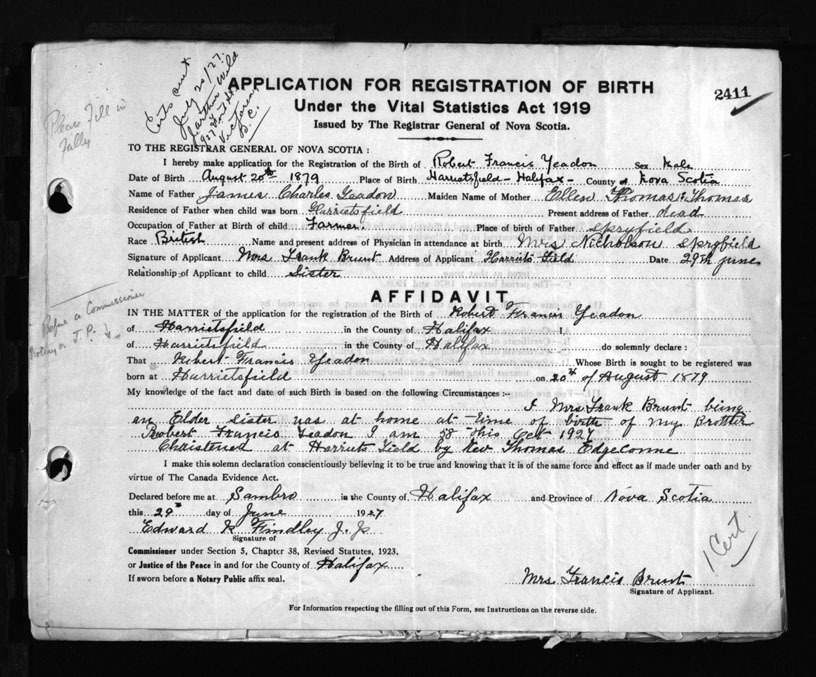 APPLICATION FOR REGISTRATION OF BIRTH
2411
Under the Vital Statistics Act 1919
Issued by The Registrar General of Nova Scotia.
Certs sent
July 20/27.
Victoria
B.C.
Please Fill in
Fully
TO THE REGISTRAR GENERAL OF NOVA SCOTIA :
I hereby make application for the Registration of the Birth of Robert Francis Yeadon Sex Male
Date of Birth August 20th 1879 Place of Birth Harrietsfield - Halifax - County of Nova Scotia
Name of Father James Charles Yeadon Maiden Name of Mother Ellen Thomas Thomas
Residence of Father when child was born Harrietsfield Present address of Father dead
Occupation of Father at Birth of child Farmer. Place of birth of Father Spryfield
Race British Name and present address of Physician in attendance at birth Mrs Nicholson Spryfield
Signature of Applicant Mrs Frank Brunt Address of Applicant Harriets Field Date 29th June
Relationship of Applicant to child Sister
AFFIDAVIT
Before a Commissioner
Notary or J.P.
IN THE MATTER of the application for the registration of the Birth of Robert Francis Yeadon
of Harrietsfield in the County of Halifax
of Harrietsfield in the County of Halifax do solemnly declare :
That Robert Francis Yeadon Whose Birth is sought to be registered was
born at Harrietsfield on 20th of August 1879
My knowledge of the fact and date of such Birth is based on the following Circumstances :-
I Mrs Frank Brunt being
an Elder Sister was at home at time of birth of my Brother
Robert Francis Yeadon I am 58 this Oct 1927
Christened at Harriets Field by Rev Thomas
I make this solemn declaration conscientiously believing it to be true and knowing that it is of the same force and effect as if made under oath and by
virtue of The Canada Evidence Act.
Declared before me at Sambro in the County of Halifax and Province of Nova Scotia
this 29th day of June 1927
Edward K Findley J.P.
Signature of
Commissioner under Section 5, Chapter 38, Revised Statutes, 1923,
or Justice of the Peace in and for the County of Halifax
If sworn before a Notary Public affix seal.
1 Cert.
Mrs Francis Brunt
Signature of Applicant.
For Information respecting the filling out of this Form, see Instructions on the reverse side.